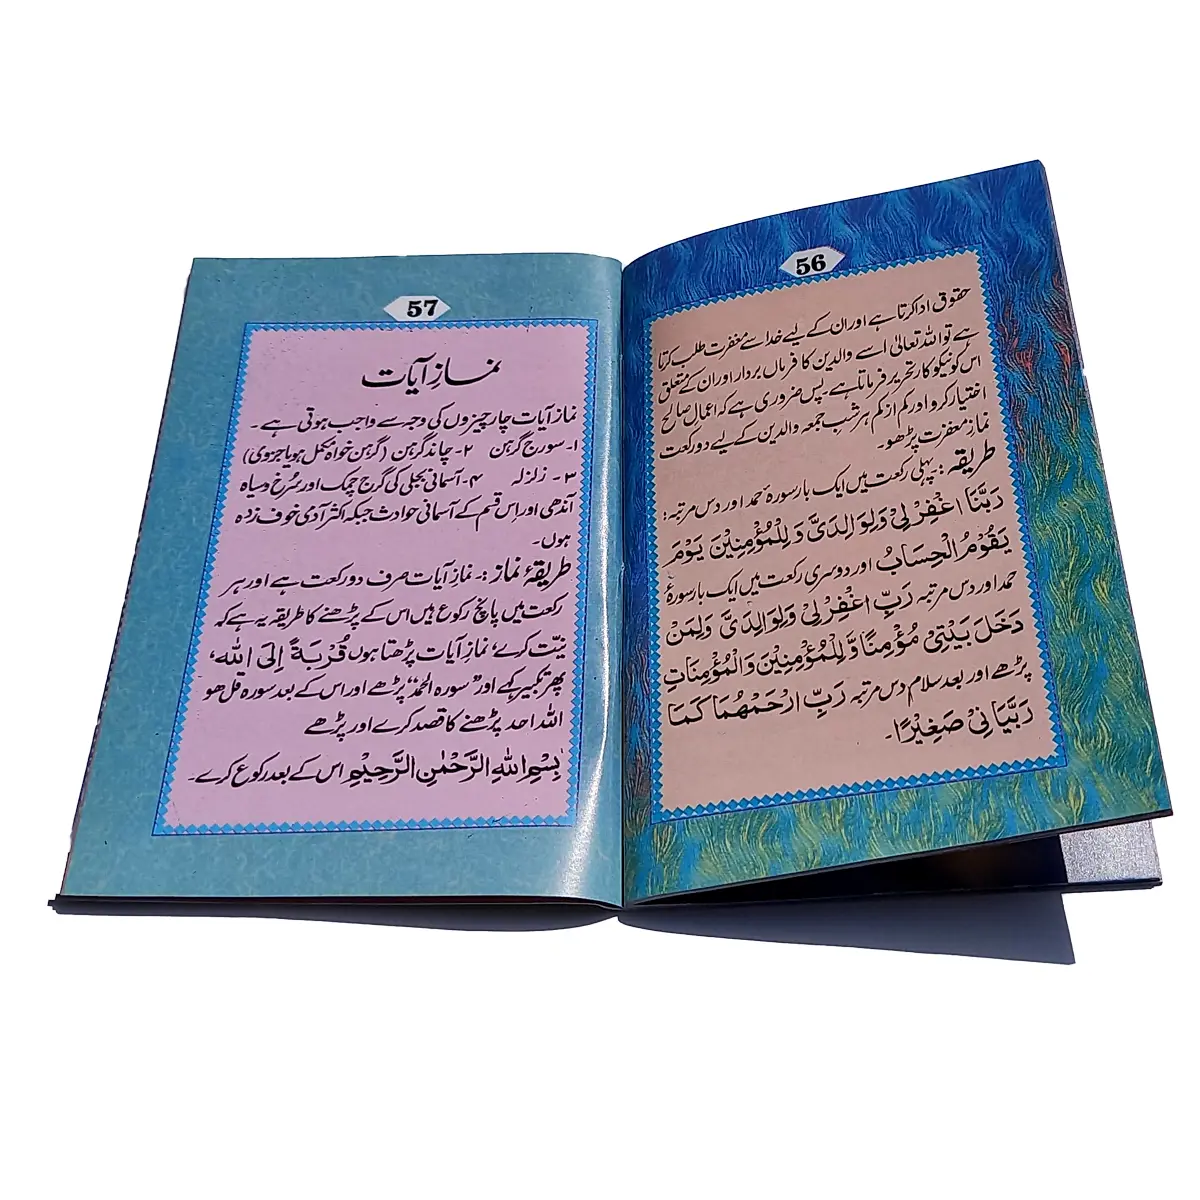 56
حقوق ادا کرتا ہے اور ان کے لیے خدا سے مغفرت طلب کرتا
ہے تو اللہ تعالیٰ اسے والدین کا فرماں بردار اور ان کے متعلق
اس کو نیکو کار تحریر فرماتا ہے۔ پس ضروری ہے کہ اعمالِ صالح
اختیار کرو اور کم از کم ہر شبِ جمعہ والدین کے لیے دو رکعت
نمازِ مغفرت پڑھو۔
طریقہ: پہلی رکعت میں ایک بار سورۂ حمد اور دس مرتبہ:
رَبَّنَا اغْفِرْ لِیْ وَلِوَالِدَیَّ وَلِلْمُؤْمِنِیْنَ یَوْمَ
یَقُوْمُ الْحِسَابُ اور دوسری رکعت میں ایک بار سورۂ
حمد اور دس مرتبہ رَبِّ اغْفِرْ لِیْ وَلِوَالِدَیَّ وَلِمَنْ
دَخَلَ بَیْتِیَ مُؤْمِنًا وَّ لِلْمُؤْمِنِیْنَ وَالْمُؤْمِنَاتِ
پڑھے اور بعد سلام دس مرتبہ رَبِّ ارْحَمْهُمَا کَمَا
رَبَّیَانِیْ صَغِیْرًا۔
57
نمازِ آیات
نماز آیات چار چیزوں کی وجہ سے واجب ہوتی ہے۔
۱۔ سورج گرہن ۲۔ چاند گرہن (گرہن خواہ مکمل ہو یا جزوی)
۳۔ زلزلہ ۴۔ آسمانی بجلی کی گرج چمک اور سُرخ و سیاہ
آندھی اور اِس قسم کے آسمانی حوادث جبکہ اکثر آدمی خوف زدہ
ہوں۔
طریقۂ نماز:۔ نماز آیات صرف دو رکعت ہے اور ہر
رکعت میں پانچ رکوع ہیں اس کے پڑھنے کا طریقہ یہ ہے کہ
نیّت کرے، نمازِ آیات پڑھتا ہوں قُرْبَةً إِلَى اللّٰهِ،
پھر تکبیر کہے اور "سورہ الحمد" پڑھے اور اس کے بعد سورہ قل ھو
اللہ احد پڑھنے کا قصد کرے اور پڑھے
بِسْمِ اللّٰهِ الرَّحْمٰنِ الرَّحِیْمِ اس کے بعد رکوع کرے۔